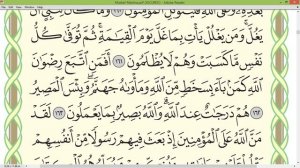 بَعْدِهِۦ وَعَلَى ٱللَّهِ فَلْيَتَوَكَّلِ ٱلْمُؤْمِنُونَ
يَغُلَّ وَمَن يَغْلُلْ يَأْتِ بِمَا غَلَّ يَوْمَ ٱلْقِيَـٰمَةِ ثُمَّ تُوَفَّىٰ كُلُّ
نَفْسٍ مَّا كَسَبَتْ وَهُمْ لَا يُظْلَمُونَ ١٦١ أَفَمَنِ ٱتَّبَعَ رِضْوَٰنَ
ٱللَّهِ كَمَنۢ بَآءَ بِسَخَطٍ مِّنَ ٱللَّهِ وَمَأْوَىٰهُ جَهَنَّمُ وَبِئْسَ ٱلْمَصِيرُ
١٦٢ هُمْ دَرَجَـٰتٌ عِندَ ٱللَّهِ وَٱللَّهُ بَصِيرٌۢ بِمَا يَعْمَلُونَ ١٦٣ لَقَدْ
مَنَّ ٱللَّهُ عَلَى ٱلْمُؤْمِنِينَ إِذْ بَعَثَ فِيهِمْ رَسُولًا مِّنْ أَنفُسِهِمْ